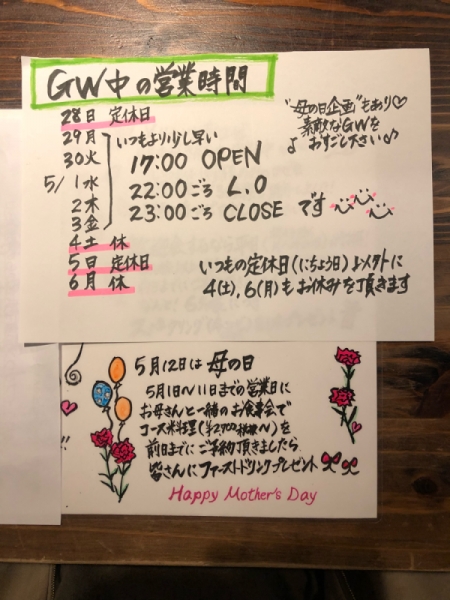 GW中の営業時間
28日 定休日
29月
30火
5/1水
2木
3金
4土 休
5日 定休日
6月 休
いつもより少し早い
17:00 OPEN
22:00ごろ L.O
23:00ごろ CLOSE です
"母の日企画"もあり♡
素敵なGWを
おすごし下さい♪
いつもの定休日(にちよう日)以外に
4(土)、6(月)もお休みを頂きます
5月12日は 母の日
5月1日〜11日までの営業日に
お母さんと一緒のお食事会で
コース料理(¥2,700税抜〜)を
前日までにご予約頂きましたら
皆さんにファーストドリンクプレゼント
Happy Mother's Day